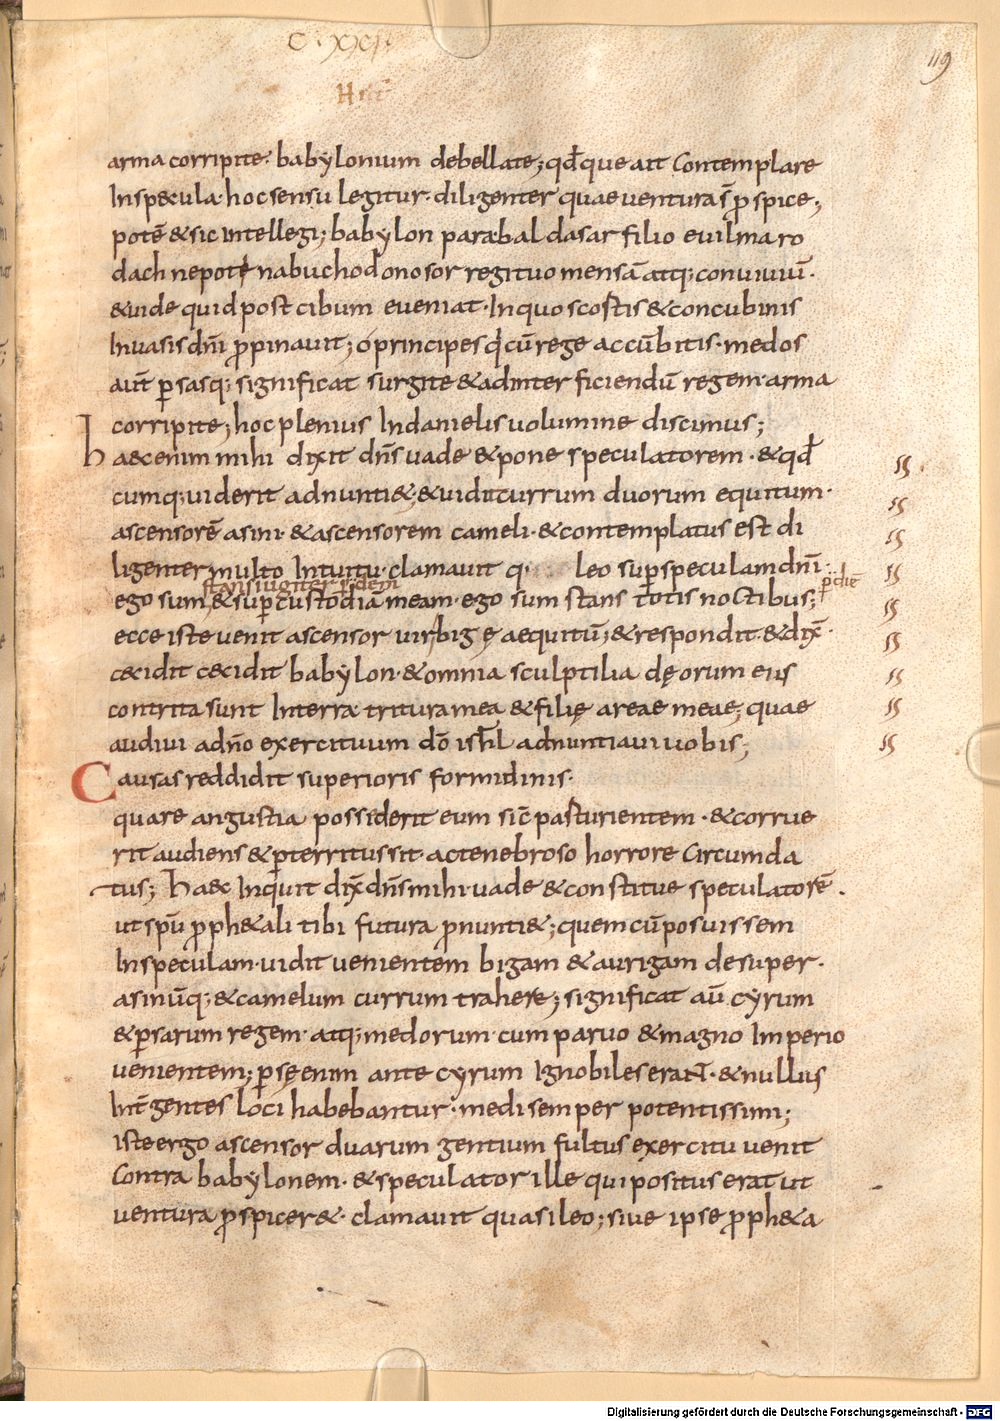 C·XXI·
119
arma corripite· babylonium debellate; qđque ait Contemplare
In specula· hoc sensu legitur· diligenter quae ventura s̄ p̄spice;
potē & sic intellegi; babylon para baldasar filio evilmaro
dach nepote nabuchodonosor regi tuo mensā atq; conuiuiū·
& uide quid post cibum eveniat· In quo scostis & concubinis
In vasis dn̄i propinauit; o principes q̄ cū rege accūbitis· medos
aut̄ p̱sasq; significat surgite & ad inter ficiendū regem· arma
corripite; hoc plenius In danielis uolumine discimus;
haec enim mihi dixit dn̄s uade & pone speculatorem· & qđ
cumq; uiderit adnunti&· & uidit currum duorum equitum·
ascensorē asini· & ascensorem cameli· & contemplatus est di
ligenter multo Intuitu· clamauit q· leo sup̱ speculam dn̄i·
stans iugiter p̱ diem
p̱ diē
ego sum, & sup̱ custodiā meam· ego sum stans totis noctibus;
ecce iste venit ascensor uir bigę aequitū; & respondit· & dix̄·
cecidit cecidit babylon· & omnia sculptilia dęorum eius
contrita sunt In terra· tritura mea & filię areae meae; quae
audiui a dn̄o exercituum dō isrl̄ adnuntiaui uobis;
Causas reddidit superioris formidinis·
quare angustia possiderit eum sic̄ pasturientem· & corrue
rit audiens & p̱territus sit· ac tenebroso horrore Circumda
tus; haec Inquit dix̄ dn̄s mihi uade & constitue speculatorē·
ut spū proph&ali tibi futura p̄nunti&; quem cū posuissem
In speculam· uidit venientem bigam & aurigam desuper·
asinūq; & camelum currum trahere; significat aū cyrum
& p̱sarum regem· atq; medorum· cum paruo & magno Imperio
uenientem; p̱sę enim ante cyrum Ignobiles erant· & nullius
Int̄ gentes loci habebantur· medi semper potentissimi;
iste ergo ascensor duarum gentium fultus exercitu uenit
Contra babylonem· & speculator ille qui positus erat ut
ventura prospicer&· clamauit quasi leo; sive ipse proph&a
Digitalisierung gefördert durch die Deutsche Forschungsgemeinschaft - DFG